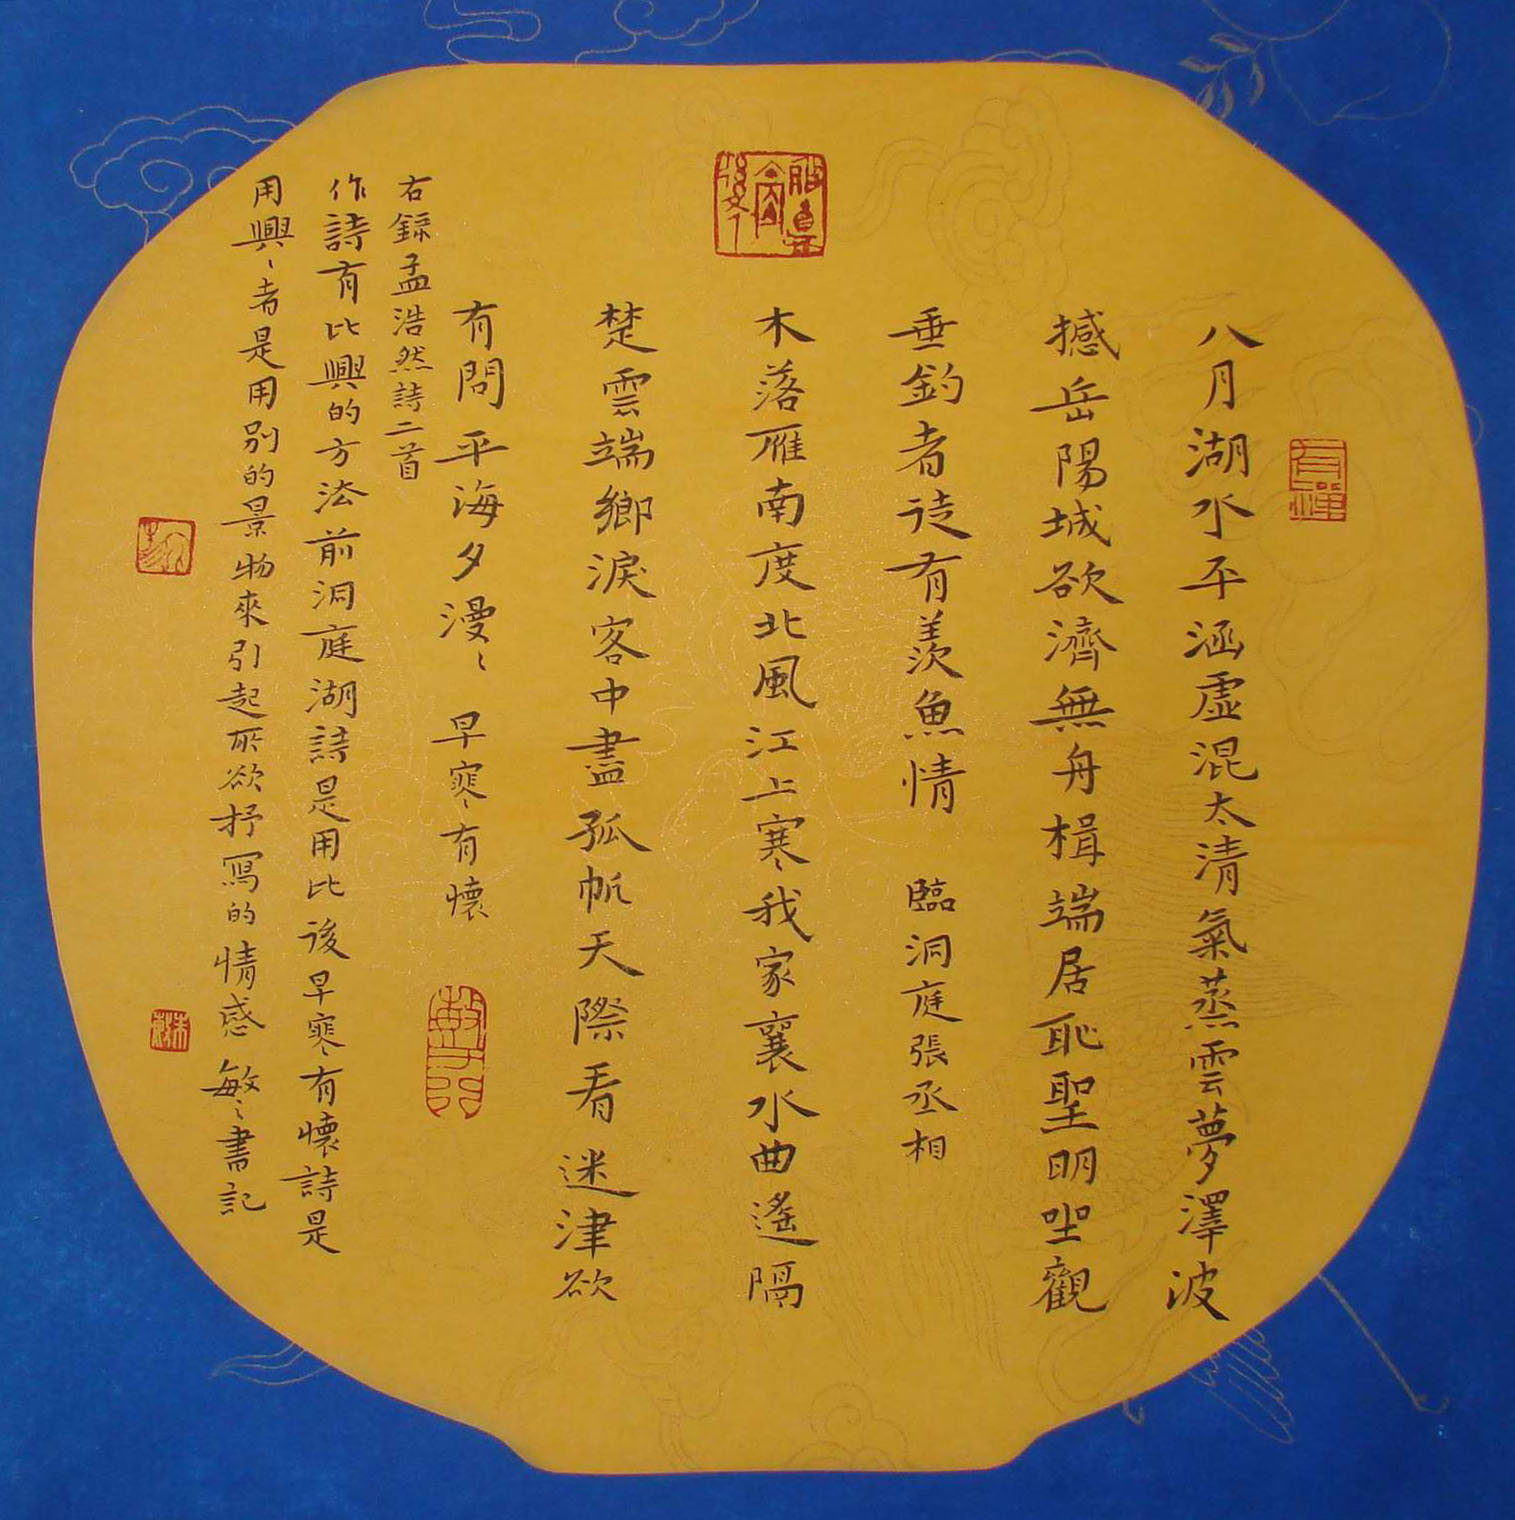 八月湖水平涵虛混太清氣蒸雲夢澤波
撼岳陽城欲濟無舟楫端居恥聖明坐觀
垂釣者徒有羨魚情 臨洞庭張丞相
木落雁南度北風江上寒我家襄水曲遙隔
楚雲端鄉淚客中盡孤帆天際看迷津欲
有問平海夕漫〻 早寒有懷
右錄孟浩然詩二首
作詩有比興的方法前洞庭湖詩是用比後早寒有懷詩是
用興〻者是用別的景物來引起所欲抒寫的情感 敏〻書記